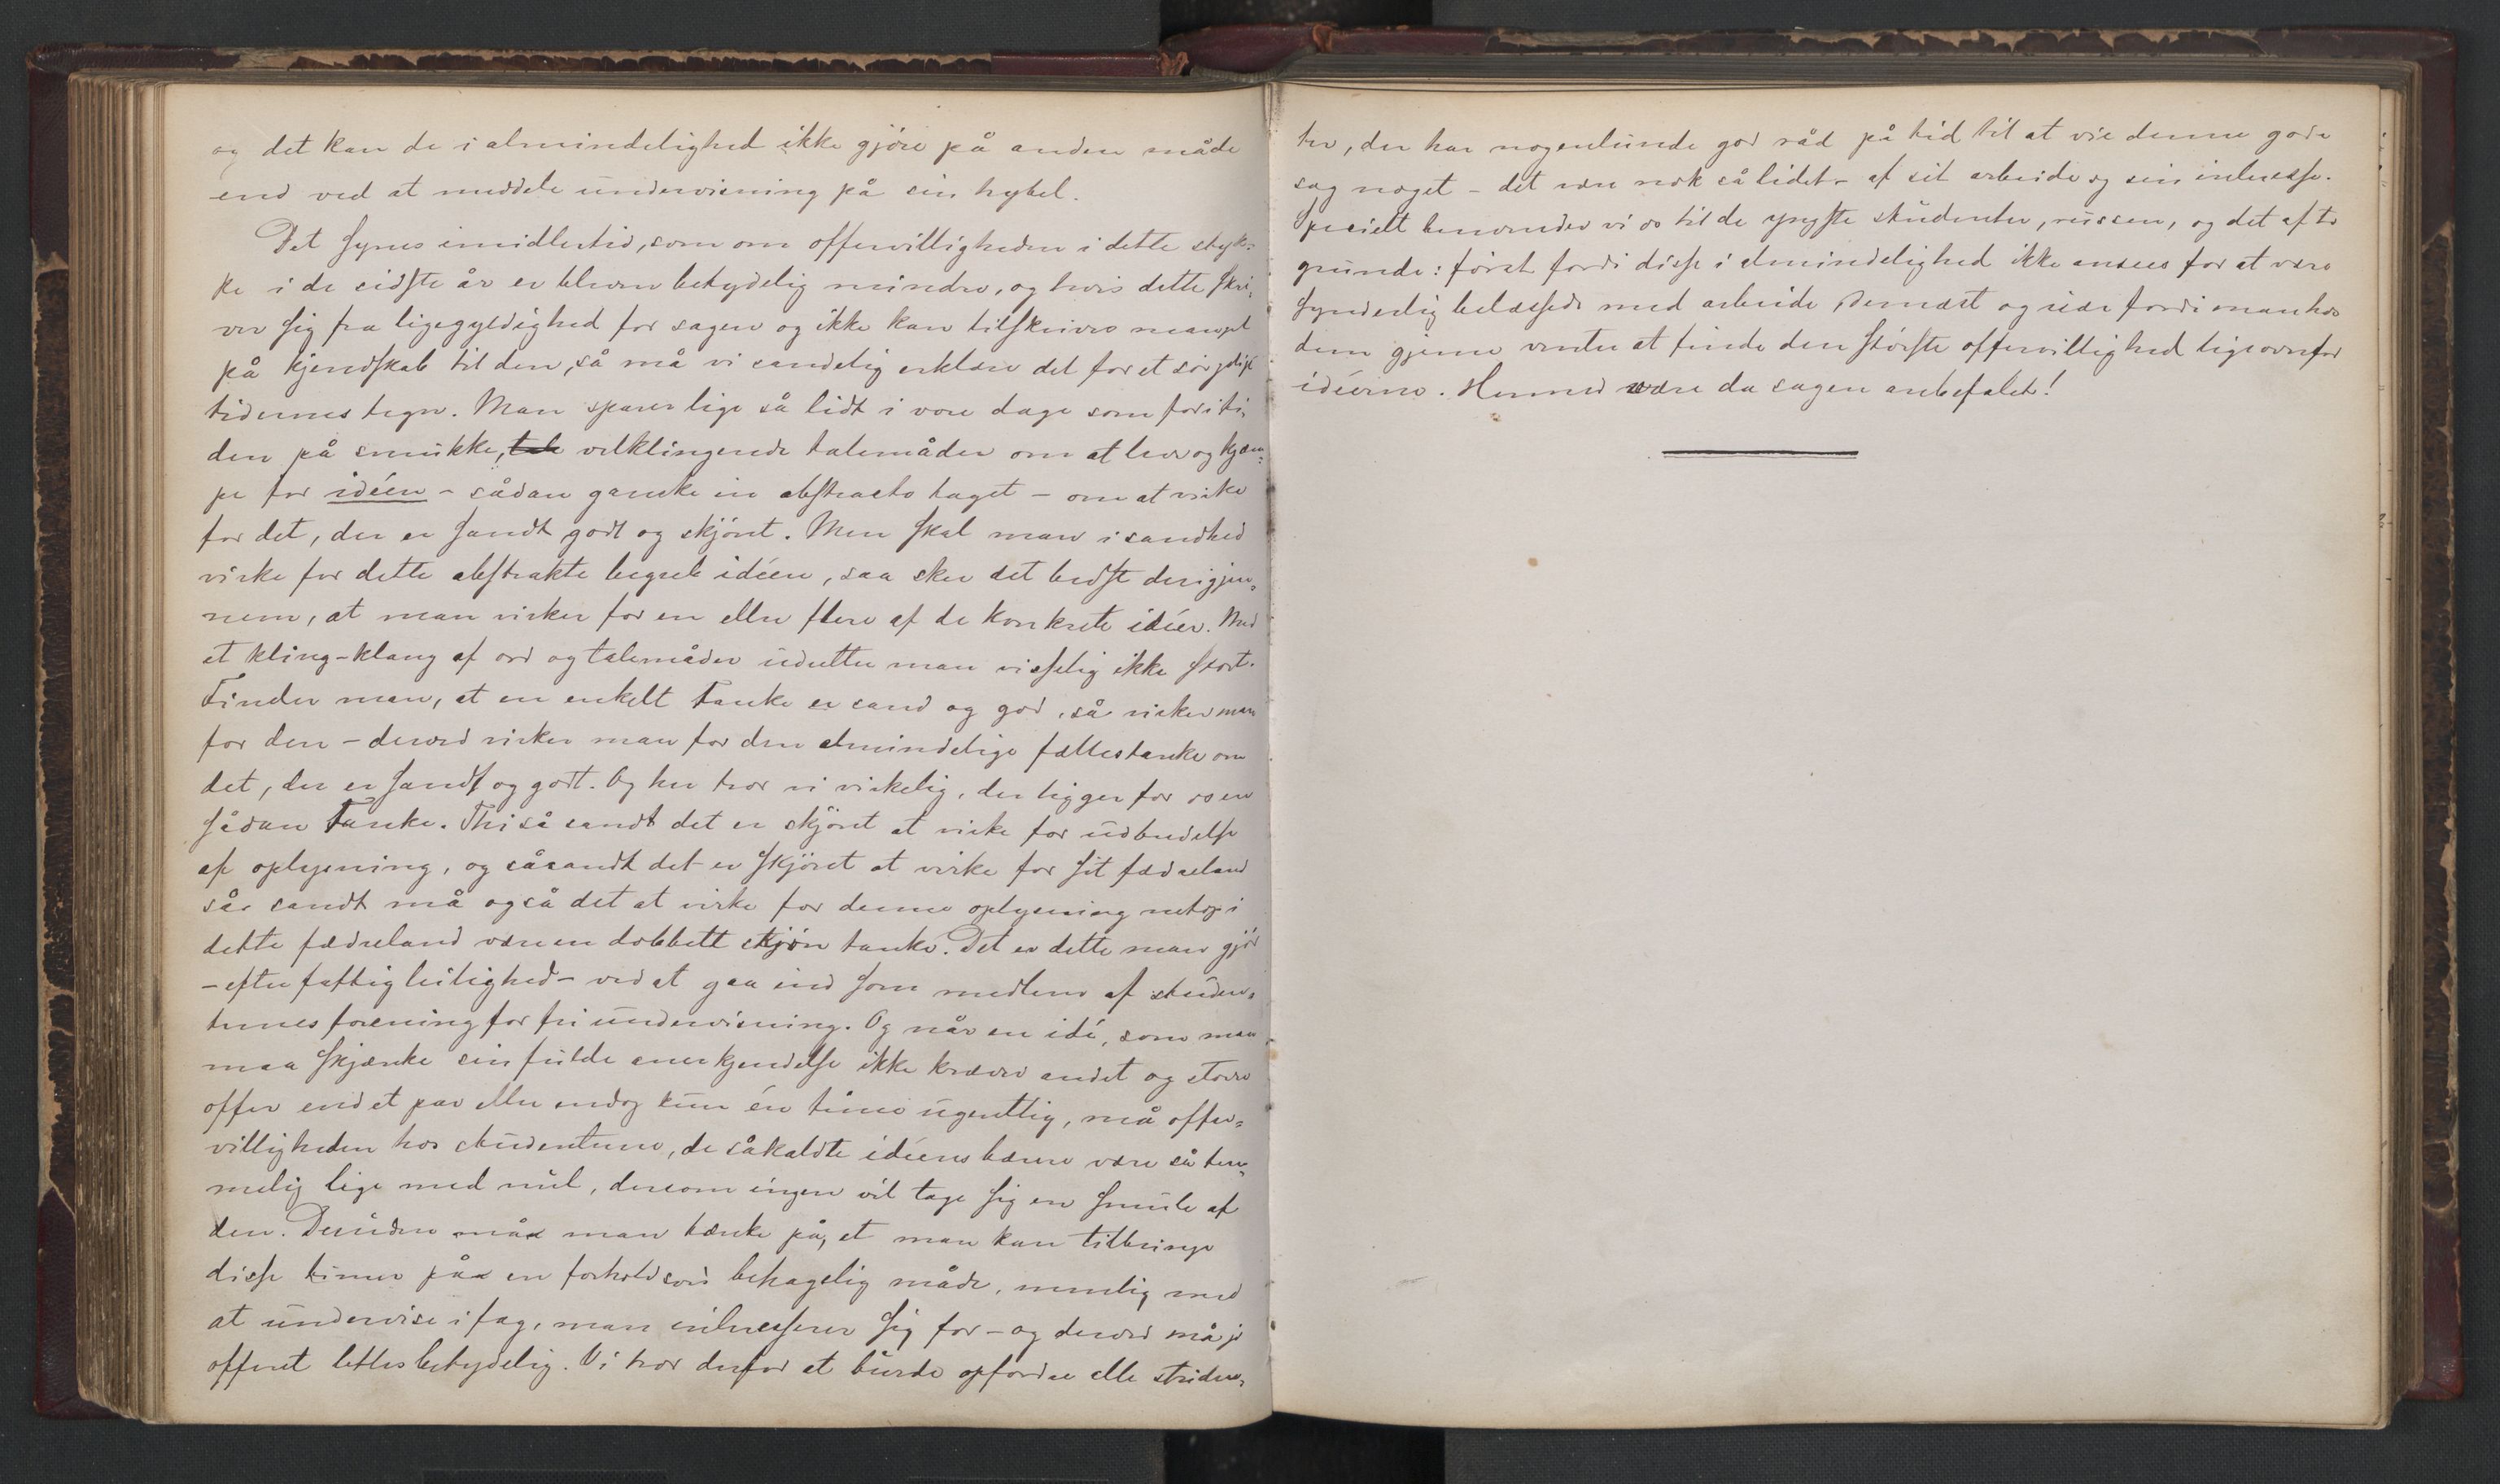 og det kan de i almindelighed ikke gjöre på anden måde
end ved at meddele undervisning på sin hybel.
Det synes imidlertid, som om offervilligheden i dette styk-
ke i de sidste år er bleven betydelig mindre, og hvis dette skri-
ver sig fra ligegyldighed for sagen og ikke kan tilskrives mangel
på kjendskab til den, så må vi sandelig erklære det for et sörgeligt
tidernes tegn. Man sparer lige så lidt i vore dage som fori ti-
den på smukke, velklingende talemåder om at leve og kjæm-
pe for idéen - sådan ganske in abstracto taget - om at virke
for det, der er sandt godt og skjönt. Men skal man i sandhed
virke for dette abstrakte begreb idéen, saa sker det bedst derigjen-
nem, at man virker for en eller flere af de konkrete idéer. Med
et kling-klang af ord og talemåder udretter man visselig ikke stort.
Finder man, at en enkelt Tanke er sand og god, så virker man
for den - derved virker man for den almindelige fællestanke om
det, der er sandt og godt. Og her tror vi virkelig, der ligger for os en
sådan Tanke. Thi så sandt det er skjönt at virke for udbredelse
af oplysning, og såsandt det er skjönt at virke for sit fædreland
så sandt må også det at virke for denne oplysning netop i
dette fædreland være en dobbelt skjön tanke. Det er dette man gjör
- efter fattig leilighed - ved at gaa ind som medlem af studen-
ternes forening for fri undervisning. Og når en idé, som man
maa skjænke sin fulde anerkjendelse ikke kræver andet og större
offer end et par eller endog kun én time ugentlig, må offer-
villigheden hos studenterne, de såkaldte idéens bærere være så tem-
melig lige med nul, dersom ingen vil tage sig en smule af
den. Desuden må man tænke på, at man kan tilbringe
disse timer på en forholdsvis behagelig måde, nemlig med
at undervise i fag, man interesserer sig for - og derved må jo
offeret lettes betydelig. Vi tror derfor at burde opfordre alle studen-
ter, der har nogenlunde god råd på tid til at vie denne gode
sag noget - det være nok så lidet - af sit arbeide og sin interesse.
Specielt henvender vi os til de yngste studenter, russen, og det af to
grunde: först fordi disse i almindelighed ikke ansees for at være
synderlig belæssede med arbeide, dernæst og især fordi man hos
dem gjerne venter at finde den störste offervillighed ligeoverfor
idéerne. Hermed være da sagen anbefalet!